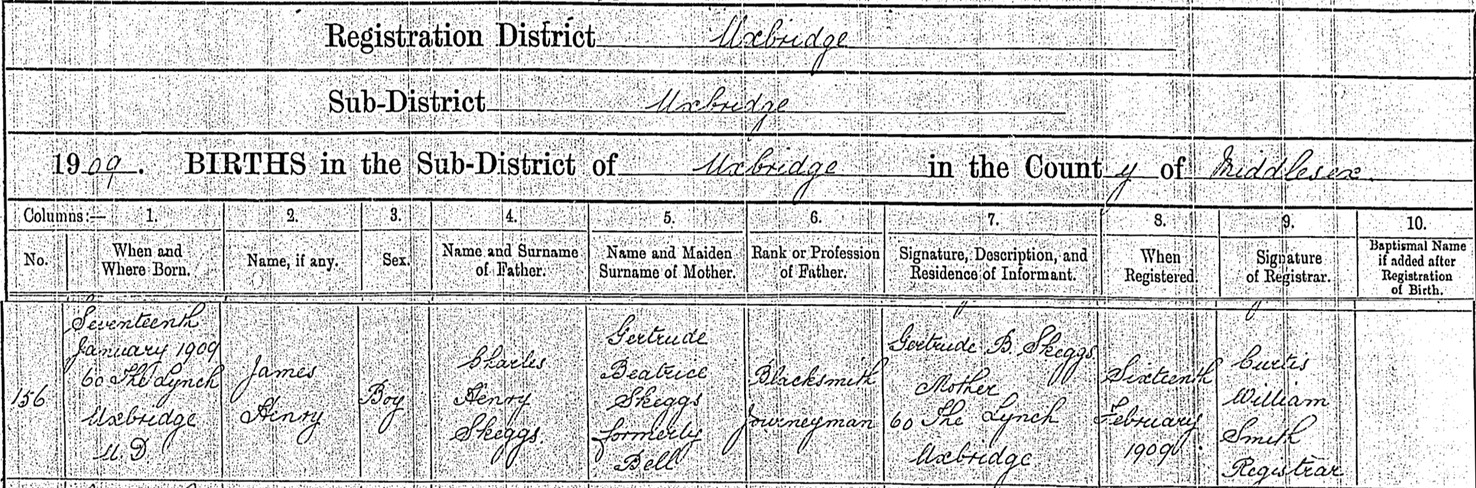 Registration District Uxbridge
Sub-District Uxbridge
1909. BIRTHS in the Sub-District of Uxbridge in the County of Middlesex
Columns:— 1. 2. 3. 4. 5. 6. 7. 8. 9. 10.
No.
When and
Where Born.
Name, if any.
Sex.
Name and Surname
of Father.
Name and Maiden
Surname of Mother.
Rank or Profession
of Father.
Signature, Description, and
Residence of Informant.
When
Registered.
Signature
of Registrar.
Baptismal Name
if added after
Registration
of Birth.
156
Seventeenth
January 1909
60 The Lynch
Uxbridge
U.D
James
Henry
Boy
Charles
Henry
Skeggs
Gertrude
Beatrice
Skeggs
formerly
Bell
Blacksmith
Journeyman
Gertrude B. Skeggs
Mother
60 The Lynch
Uxbridge
Sixteenth
February
1909
Curtis
William
Smith
Registrar